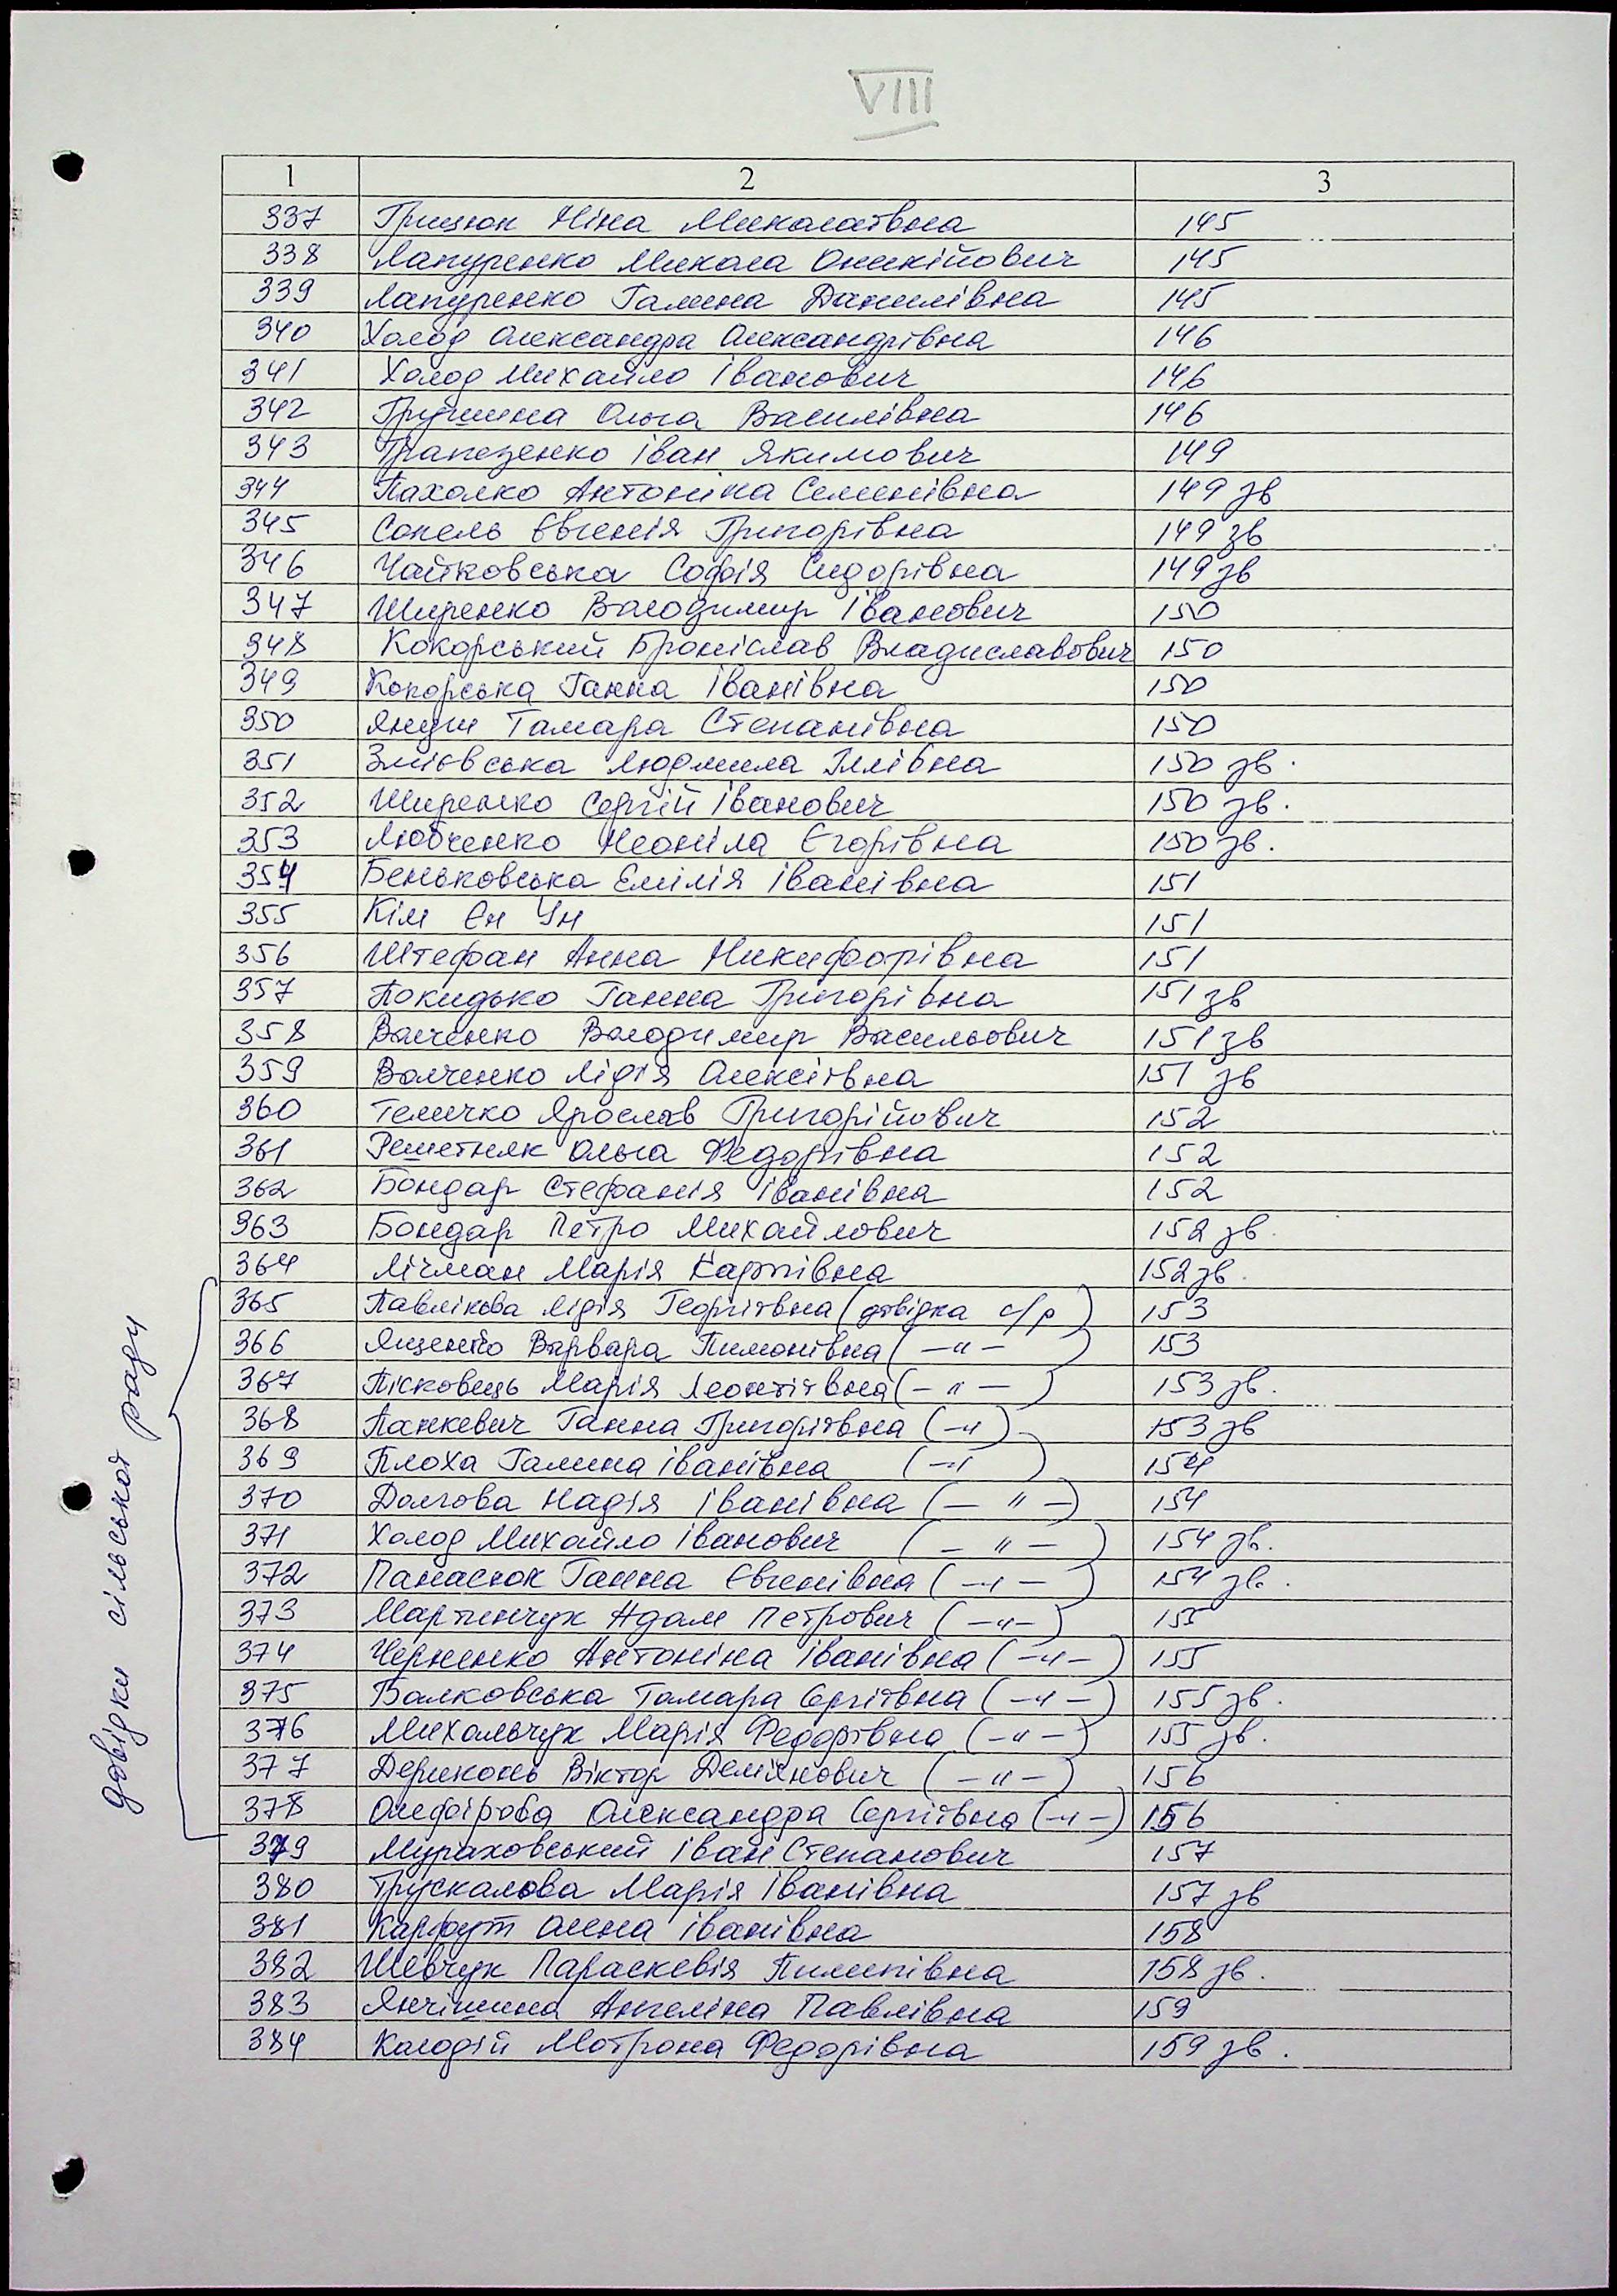 VIII
1 2 3
337 Грицюк Ніна Миколаївна 145
338 Лапуренко Микола Оникійович 145
339 Лапуренко Галина Данилівна 145
340 Холод Олександра Олександрівна 146
341 Холод Михайло Іванович 146
342 Грушина Ольга Василівна 146
343 Трапезенко Іван Якимович 149
344 Пахолко Антоніна Семенівна 149 зв
345 Сопель Євгенія Григорівна 149 зв
346 Чайковська Софія Сидорівна 149 зв
347 Ширенко Володимир Іванович 150
348 Кокорський Броніслав Владиславович 150
349 Кокорська Ганна Іванівна 150
350 Янчи Тамара Степанівна 150
351 Змієвська Людмила Іллівна 150 зв.
352 Ширенко Сергій Іванович 150 зв.
353 Любченко Неоніла Єгорівна 150 зв.
354 Беньковська Емілія Іванівна 151
355 Кім Єн Ун 151
356 Штефан Анна Никифорівна 151
357 Покидько Ганна Григорівна 151 зв
358 Валченко Володимир Васильович 151 зв
359 Валченко Лідія Олексіївна 151 зв
360 Теличко Ярослав Григорійович 152
361 Решетняк Ольга Федорівна 152
362 Бондар Стефанія Іванівна 152
363 Бондар Петро Михайлович 152 зв.
364 Лічман Марія Карпівна 152 зв.
365 Павлікова Лідія Георгіївна (довідка с/р) 153
366 Яценко Варвара Пимонівна (—"—) 153
367 Пісковець Марія Леонтіївна (—"—) 153 зв.
368 Панкевич Ганна Григоріївна (—") 153 зв
369 Плоха Галина Іванівна (—") 154
370 Долгова Надія Іванівна (—"—) 154
371 Холод Михайло Іванович (—"—) 154 зв.
372 Панасюк Ганна Євгенівна (—"—) 154 зв.
373 Мартинчук Адам Петрович (—"—) 155
374 Черненко Антоніна Іванівна (—"—) 155
375 Валковська Тамара Сергіївна (—"—) 155 зв.
376 Михальчук Марія Федорівна (—"—) 155 зв.
377 Дериконь Віктор Дем'янович (—"—) 156
378 Олефірова Олександра Сергіївна (—"—) 156
379 Мураховський Іван Степанович 157
380 Трускалова Марія Іванівна 157 зв
381 Карфут Олена Іванівна 158
382 Шевчук Параскевія Пилипівна 158 зв.
383 Янчішина Ангеліна Павлівна 159
384 Колодій Мотрона Федорівна 159 зв.
довідки сільської ради